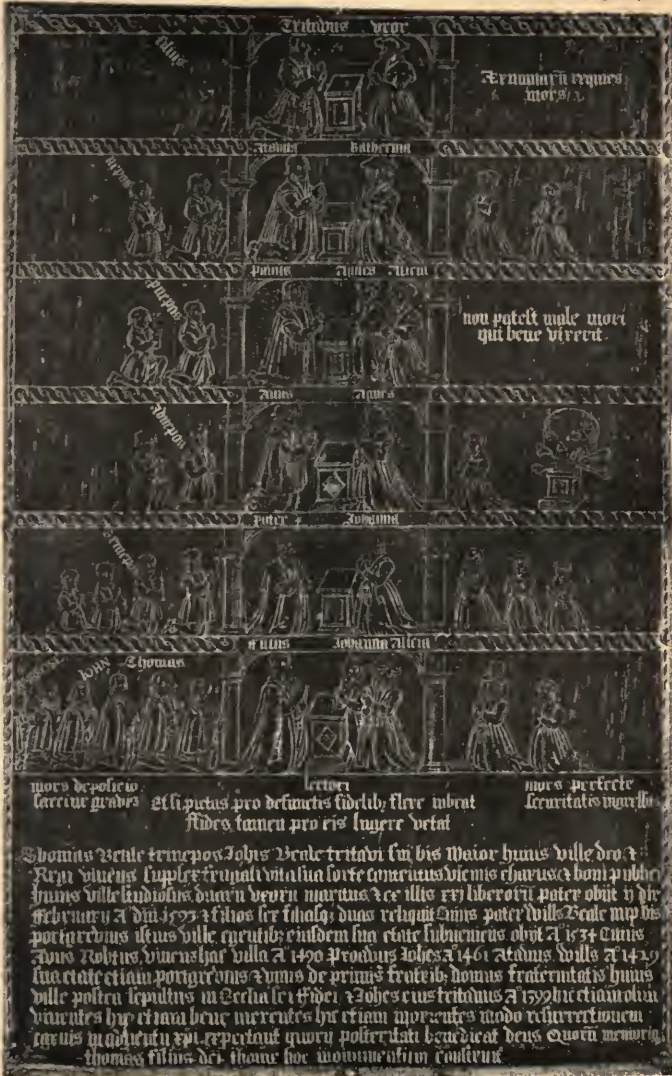 Tritavus uxor
filius
Ærumnarū requies
mors
Atavus Katherina
nepos
Proavus Agnes Alicia
pnepos
non potest male mori
qui bene vixerit.
Avus Agnes
Abnepos
Pater Johanna
Filius Johanna Alicia
JOHN Thomas
mors deposicio lectori mors perfecte
sarcine gravis Et si pietas pro defunctis fidelib; flere iubeat securitatis
ffides tamen pro eis lugere vetat
Thomas Beale trinepos Johis Beale tritavi sui bis Maior huius ville deo &
Regi vivens supplex frugali vita sua sorte contentus charus & boni publici
huius ville studiosus duarū uxorū maritus & ex illis xxj liberorū pater obijt die
February A dni 1593 & filios sex filiasq; duas reliquit Cuius pater Wills Beale bis
portgrevius istius ville egentib; eiusdem sua etate subveniens obijt A° 1534 Cuius
Avus Robtus, vivens hac villa A° 1490 Proavus Johes A° 1461 Atavus Wills A° 1429
sua etate etiam portgrevius & unus de primis fratrib; domus fraternitatis huius
ville postea sepultus in Ecclia sct ffidei & Johes eius tritavus A° 1399 hic etiam olim
viventes hic etiam bene merentes hic etiam morientes modo resurrectionem
carnis in adventū xpi expectant quorū posteritati benedicat deus Quorū memorie
thomas filius dei thome hoc monumentum construxit